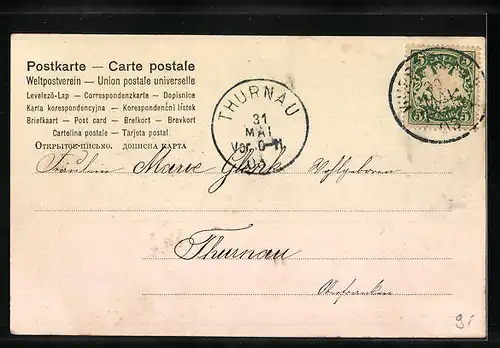 Postkarte — Carte postale
Weltpostverein — Union postale universelle
Levelező-Lap — Correspondenzkarte — Dopisnice
Karta korespondencyjna — Korespondenční lístek
Briefkaart — Post card — Brefkort — Brevkort
Cartolina postale — Tarjeta postal
Открытое-письмо. дописна карта
THURNAU
31
MAI
Vor. 0-11
03
5 5
5 5
Fräulein Marie Wohlgeboren
Thurnau
Oberfranken